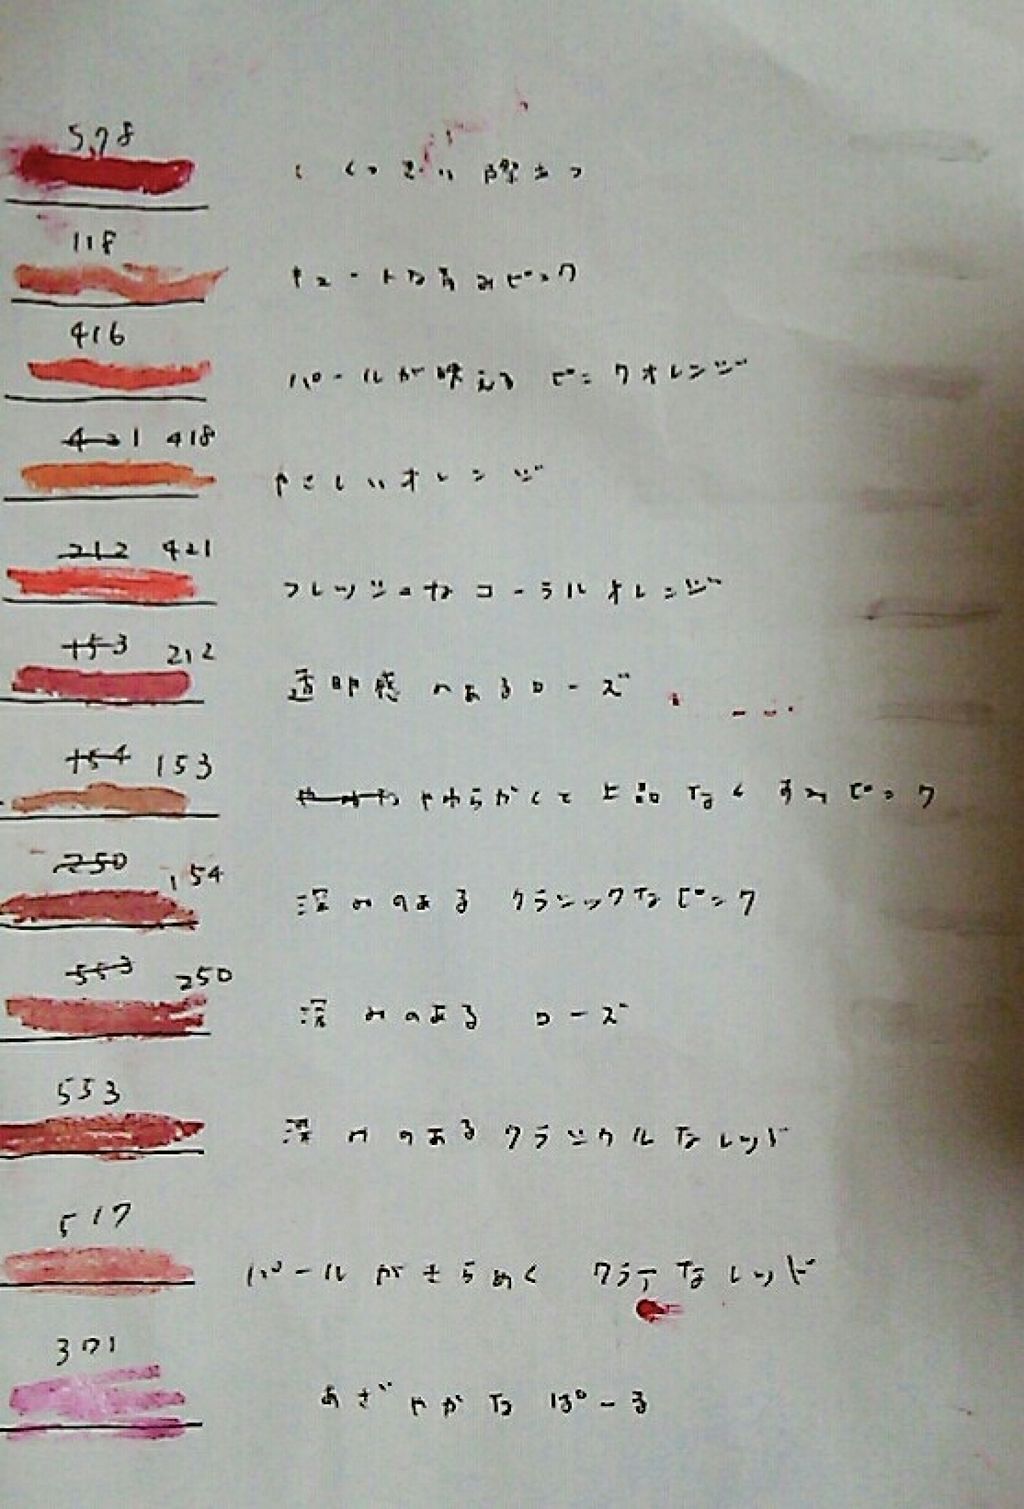 578
くっきり際立つ
118
キュートな青みピンク
416
パールが映える ピンクオレンジ
421 418
やさしいオレンジ
212 421
フレッシュな コーラルオレンジ
153 212
透明感のあるローズ
154 153
やわらかくて上品なくすみピンク
250 154
深みのある クラシックなピンク
553 250
深みのある ローズ
553
深みのあるクラシカルなレッド
517
パールがきらめく クリアなレッド
301
あざやかな ぱーる